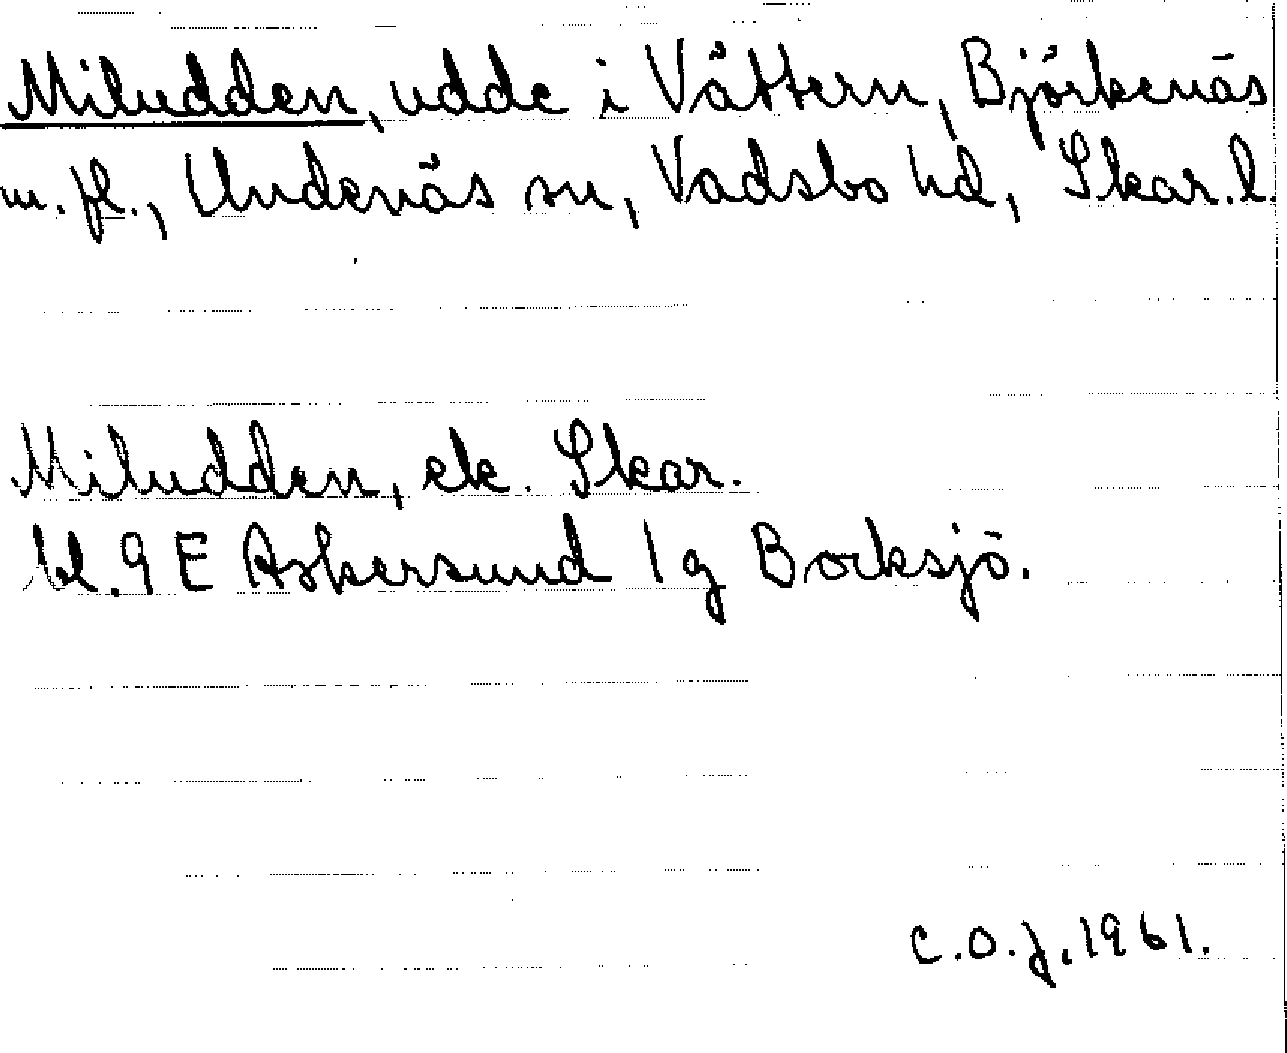 Miludden, udde i Vättern, Björkenäs
m. fl., Undenäs sn, Vadsbo hd, Skar. l.
Miludden, ek. Skar.
bl. 9 E Askersund 1 g Bocksjö.
C.O.J. 1961.